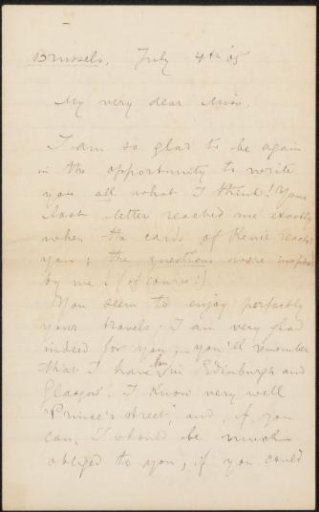 Brussels, July 4th 05
My very dear Miss,
I am so glad to be again
in the opportunity to write
you all what I think! Your
last letter reached me exactly
when the cards of Renée reach
you; the questions were
by me! (of course!)
You seem to enjoy perfectly
your travels; I am very glad
indeed for you, you'll remember
that I have been in Edinburgh and
Glasgow. I know very well
"Prince's street", and, if you
can, I should be much
obliged to you, if you could